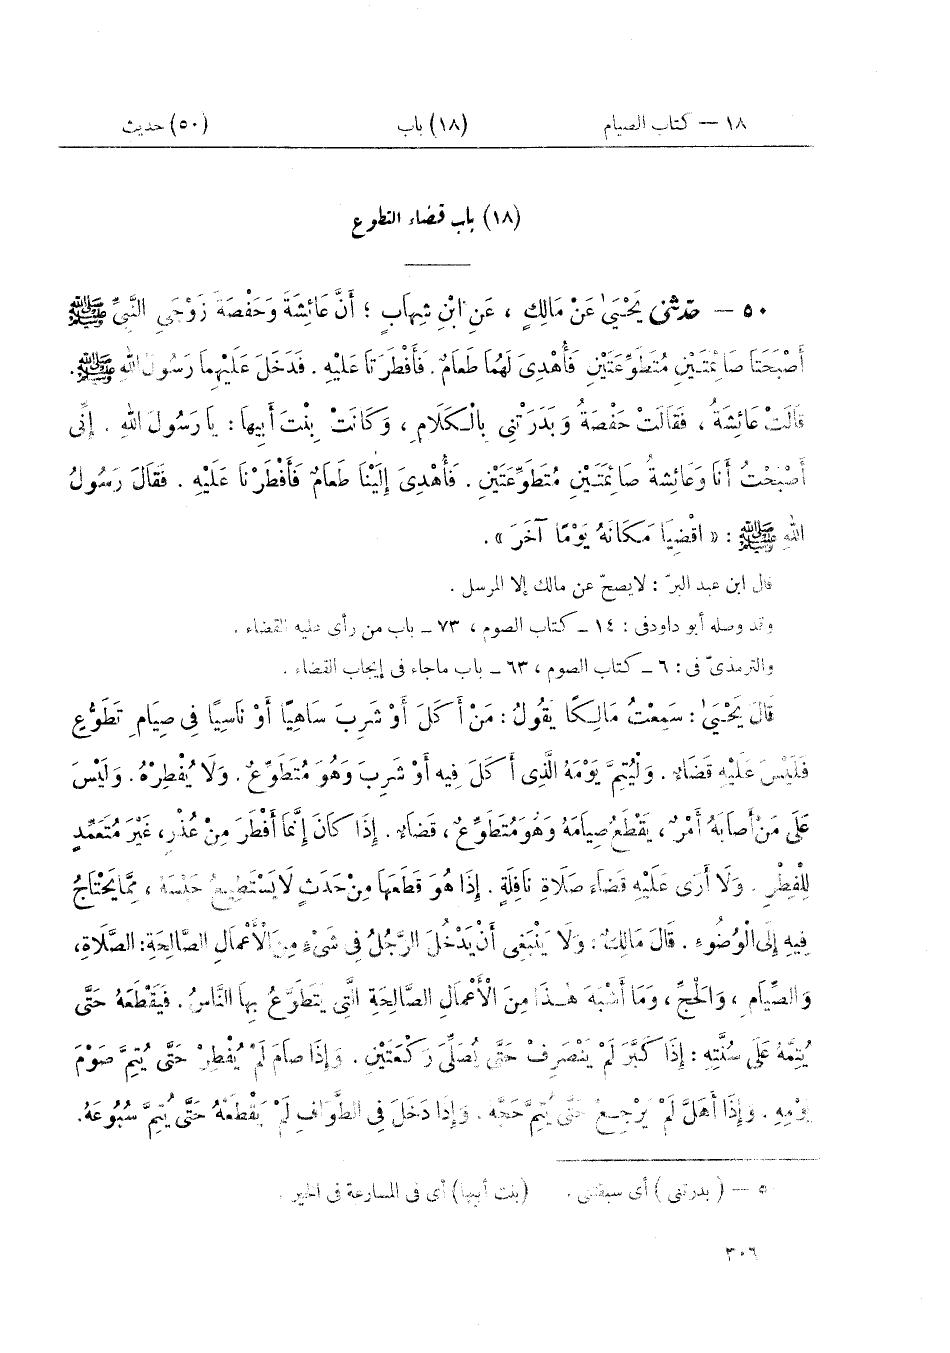 ١٨ — كتاب الصيام (١٨) باب (٥٠) حديث
(١٨) باب قضاء التطوع
٥٠ — حَدَّثَنِى يَحْيَىٰ عَنْ مَالِكٍ ، عَنِ ابْنِ شِهَابٍ ؛ أَنَّ عَائِشَةَ وَحَفْصَةَ زَوْجَىِ النَّبِىِّ ﷺ
أَصْبَحَتَا صَائِمَتَيْنِ مُتَطَوِّعَتَيْنِ فَأُهْدِىَ لَهُمَا طَعَامٌ . فَأَفْطَرَتَا عَلَيْهِ . فَدَخَلَ عَلَيْهِمَا رَسُولُ اللهِ ﷺ .
قَالَتْ عَائِشَةُ ، فَقَالَتْ حَفْصَةُ وَبَدَرَتْنِى بِالْكَلَامِ ، وَكَانَتْ بِنْتَ أَبِيهَا : يَا رَسُولَ اللهِ . إِنِّى
أَصْبَحْتُ أَنَا وَعَائِشَةُ صَائِمَتَيْنِ مُتَطَوِّعَتَيْنِ . فَأُهْدِىَ إِلَيْنَا طَعَامٌ فَأَفْطَرْنَا عَلَيْهِ . فَقَالَ رَسُولُ
اللهِ ﷺ : « اقْضِيَا مَكَانَهُ يَوْمًا آخَرَ » .
قال ابن عبد البرّ : لا يصحّ عن مالك إلا المرسل .
وقد وصله أبو داود فى : ١٤ — كتاب الصوم ، ٧٣ — باب من رأى عليه القضاء .
والترمذىّ فى : ٦ — كتاب الصوم ، ٦٣ — باب ماجاء فى إيجاب القضاء .
قَالَ يَحْيَىٰ : سَمِعْتُ مَالِكًا يَقُولُ : مَنْ أَكَلَ أَوْ شَرِبَ سَاهِيًا أَوْ نَاسِيًا فِى صِيَامِ تَطَوُّعٍ
فَلَيْسَ عَلَيْهِ قَضَاءٌ . وَلْيُتِمَّ يَوْمَهُ الَّذِى أَكَلَ فِيهِ أَوْ شَرِبَ وَهُوَ مُتَطَوِّعٌ . وَلَا يُفْطِرْهُ . وَلَيْسَ
عَلَى مَنْ أَصَابَهُ أَمْرٌ ، يَقْطَعُ صِيَامَهُ وَهُوَ مُتَطَوِّعٌ ، قَضَاءٌ . إِذَا كَانَ إِنَّمَا أَفْطَرَ مِنْ عُذْرٍ ، غَيْرَ مُتَعَمِّدٍ
لِلْفِطْرِ . وَلَا أَرَى عَلَيْهِ قَضَاءَ صَلَاةِ نَافِلَةٍ . إِذَا هُوَ قَطَعَهَا مِنْ حَدَثٍ لَا يَسْتَطِيعُ حَبْسَهُ ، مِمَّا يَحْتَاجُ
فِيهِ إِلَى الْوُضُوءِ . قَالَ مَالِكٌ : وَلَا يَنْبَغِى أَنْ يَدْخُلَ الرَّجُلُ فِى شَىْءٍ مِنَ الْأَعْمَالِ الصَّالِحَةِ : الصَّلَاةِ ،
وَالصِّيَامِ ، وَالْحَجِّ ، وَمَا أَشْبَهَ هٰذَا مِنَ الْأَعْمَالِ الصَّالِحَةِ الَّتِى يَتَطَوَّعُ بِهَا النَّاسُ . فَيَقْطَعَهُ حَتَّى
يُتِمَّهُ عَلَى سُنَّتِهِ : إِذَا كَبَّرَ لَمْ يَنْصَرِفْ حَتَّى يُصَلِّىَ رَكْعَتَيْنِ . وَإِذَا صَامَ لَمْ يُفْطِرْ حَتَّى يُتِمَّ صَوْمَ
يَوْمِهِ . وَإِذَا أَهَلَّ لَمْ يَرْجِعْ حَتَّى يُتِمَّ حَجَّهُ . وَإِذَا دَخَلَ فِى الطَّوَافِ لَمْ يَقْطَعْهُ حَتَّى يُتِمَّ سُبُوعَهُ .
٥٠ — ( بدرتنى ) أى سبقتنى . (بنت أبيها) أى فى المسارعة فى الخير .
٣٠٦